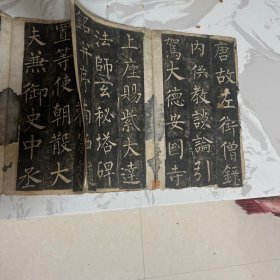 唐故左街僧録
內供教談論引
駕大德安國寺
上座賜紫大達
法師玄秘塔碑
銘
置等使朝散大
夫兼御史中丞